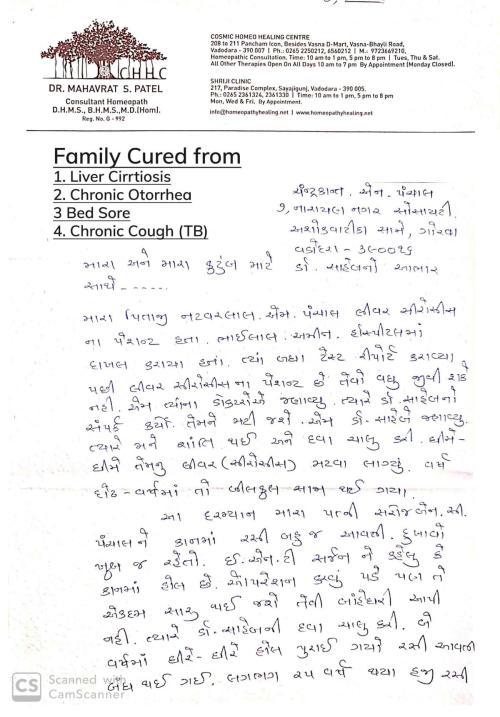 CHHC
DR. MAHAVRAT S. PATEL
Consultant Homeopath
D.H.M.S., B.H.M.S.,M.D.[Hom].
Reg. No. G - 992
COSMIC HOMEO HEALING CENTRE
208 to 211 Pancham Icon, Besides Vasna D-Mart, Vasna-Bhayli Road,
Vadodara - 390 007 | Ph.: 0265 2250212, 6560212 | M.: 9723669210,
Homeopathic Consultation. Time: 10 am to 1 pm, 5 pm to 8 pm | Tues, Thu & Sat.
All Other Therapies Open On All Days 10 am to 7 pm By Appointment (Monday Closed).
SHRIJI CLINIC
217, Paradise Complex, Sayajigunj, Vadodara - 390 005.
Ph.: 0265 2361324, 2361330 | Time: 10 am to 1 pm, 5 pm to 8 pm
Mon, Wed & Fri. By Appointment.
info@homeopathyhealing.net | www.homeopathyhealing.net
Family Cured from
1. Liver Cirrtiosis
2. Chronic Otorrhea
3 Bed Sore
4. Chronic Cough (TB)
ચંદ્રકાન્ત . એન . પંચાલ
૭, નારાયણ નગર સોસાયટી.
અશોકવાટીકા સામે, ગોરવા
વડોદરા - ૩૯૦૦૧૬
મારા અને મારા કુટુંબ માટે ડૉ. સાહેબનો આભાર
સાથે - - - - - .
મારા પિતાજી નટવરલાલ . એમ. પંચાલ લીવર સીરોસીસ
ના પેશન્ટ હતા. ભાઈલાલ . અમીન . હોસ્પીટલમાં
દાખલ કરાયા હતાં. ત્યાં બધા ટેસ્ટ રીપોર્ટ કરાવ્યા
પછી લીવર સીરોસીસ ના પેશન્ટ છે તેવો વધુ જીવી શકે
નહીં. એમ ત્યાંના ડોકટરોએ જણાવ્યુ. ત્યારે ડૉ. સાહેબનો
સંપર્ક કર્યો. તેમને મટી જશે. એમ ડૉ. સાહેબે જણાવ્યુ.
ત્યારે મને શાંતિ થઈ અને દવા ચાલુ કરી. ધીમે-
ધીમે તેમનુ લીવર (સીરોસીસ) મટવા લાગ્યું. વર્ષ
દોઢ-વર્ષમાં તો બીલકુલ સાજા થઈ ગયા.
આ દરમ્યાન મારા પત્ની સરોજબેન. સી.
પંચાલ ને કાનમાં રસી બહુ જ આવતી. દુખાવો
ખુબ જ રહેતો. ઈ. એન. ટી સર્જન ને કહેલુ કે
કાનમાં હોલ છે. ઓપરેશન કરવું પડે પણ તે
એકદમ સારૂ થઈ જશે તેવી બાંહેધારી આપી
નહી. ત્યારે ડૉ. સાહેબની દવા ચાલુ કરી. બે
વર્ષમાં ધીરે- ધીરે હોલ પુરાઈ ગયો રસી આવતી
બંધ થઈ ગઈ. લગભગ ૨૫ વર્ષ થયા હજી રસી
CS Scanned with
CamScanner